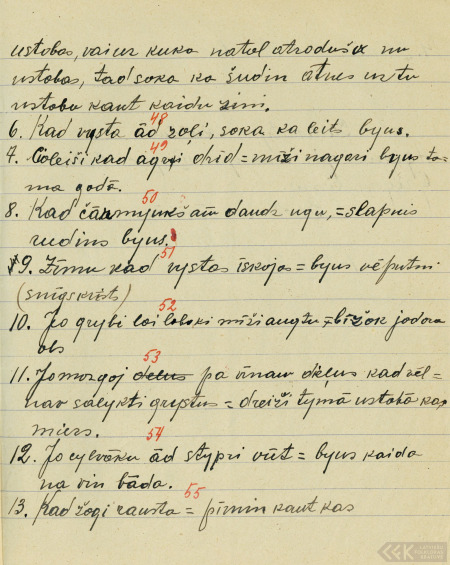 ustobas, vaiur kuka natol atroduša nu
ustobas, tad soka ka šudin atnes uz tu
ustobu kaut kaidu zini.
48
6. Kad vysta ād zoļi, soka ka leits byus.
49
7. Cōleiši kad āgri dzid = mīži nagori byus ta=
ma godā.
50
8. Kad čārmyukšam daudz ugu, = slapnis
rudins byus.
51
9. Zīmu kad vystas īskojos = byus vēputni
(snīgskrits)
52
10. Jo grybi loi lobski mīži augtu = bīžok jodora
ols
53
11. Jo mozgoj pa vīnam dēlus kad vēl=
nav salykti grystus = dreiži tymā ustobā kas
miers.
54
12. Jo cylvāku ād stypri vūt = byus kaida
na vin bāda.
55
13. Kad žogi rausta = pīmin kaut kas